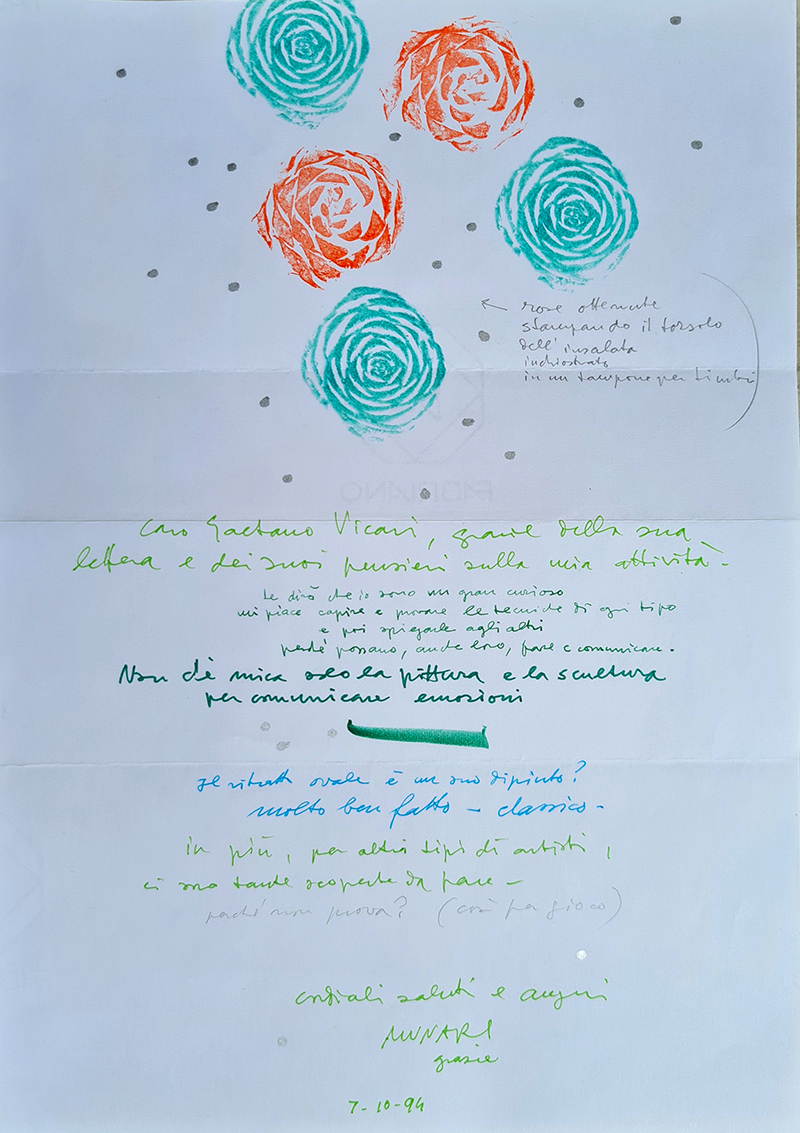 ← rose ottenute
stampando il torsolo
dell'insalata
inchiostrato
in un tampone per timbri
FABRIANO
Caro Gaetano Vicari, grazie della sua
lettera e dei suoi pensieri sulla mia attività -
Le dirò che io sono un gran curioso
mi piace capire e provare le tecniche di ogni tipo
e poi spiegarle agli altri
perché possano, anche loro, fare e comunicare.
Non c'è mica solo la pittura e la scultura
per comunicare emozioni
Il ritratto ovale è un suo dipinto?
molto ben fatto - classico -
in più, per altri tipi di artisti,
ci sono tante scoperte da fare -
perché non prova? (così per gioco)
cordiali saluti e auguri
MUNARI
grazie
7-10-94